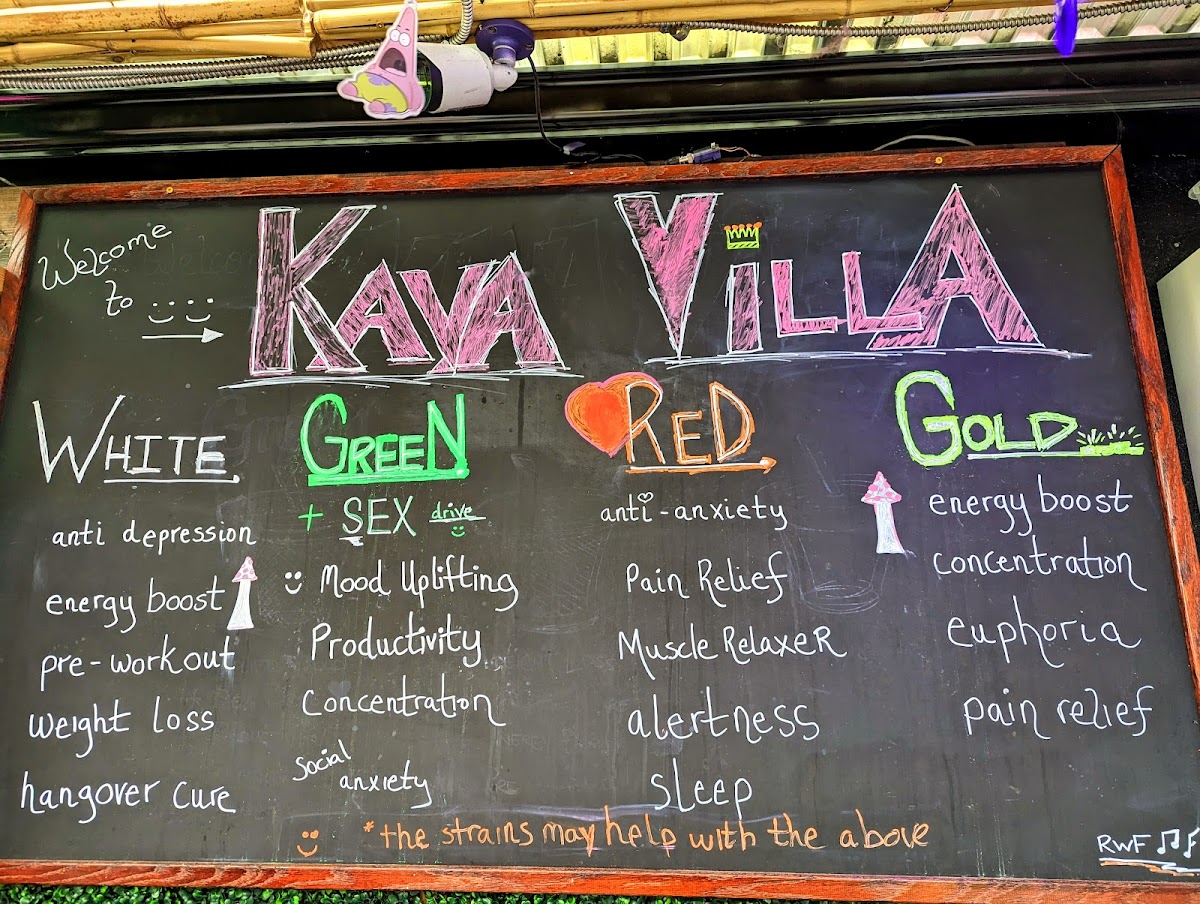 Welcome
to
KAVA VILLA
WHITE
anti depression
energy boost
pre-workout
weight loss
hangover cure
GREEN
+ SEX drive
Mood Uplifting
Productivity
Concentration
social
anxiety
RED
anti-anxiety
Pain Relief
Muscle RelaxeR
alertness
sleep
GOLD
energy boost
concentration
euphoria
pain relief
*the strains may help with the above
RWF